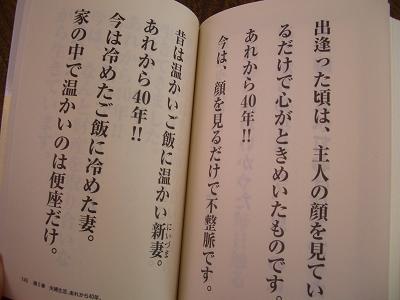 出逢った頃は、主人の顔を見てい
るだけで心がときめいたものです。
あれから40年!!
今は、顔を見るだけで不整脈です。
昔は温かいご飯に温かい新妻。
にいづま
あれから40年!!
今は冷めたご飯に冷めた妻。
家の中で温かいのは便座だけ。